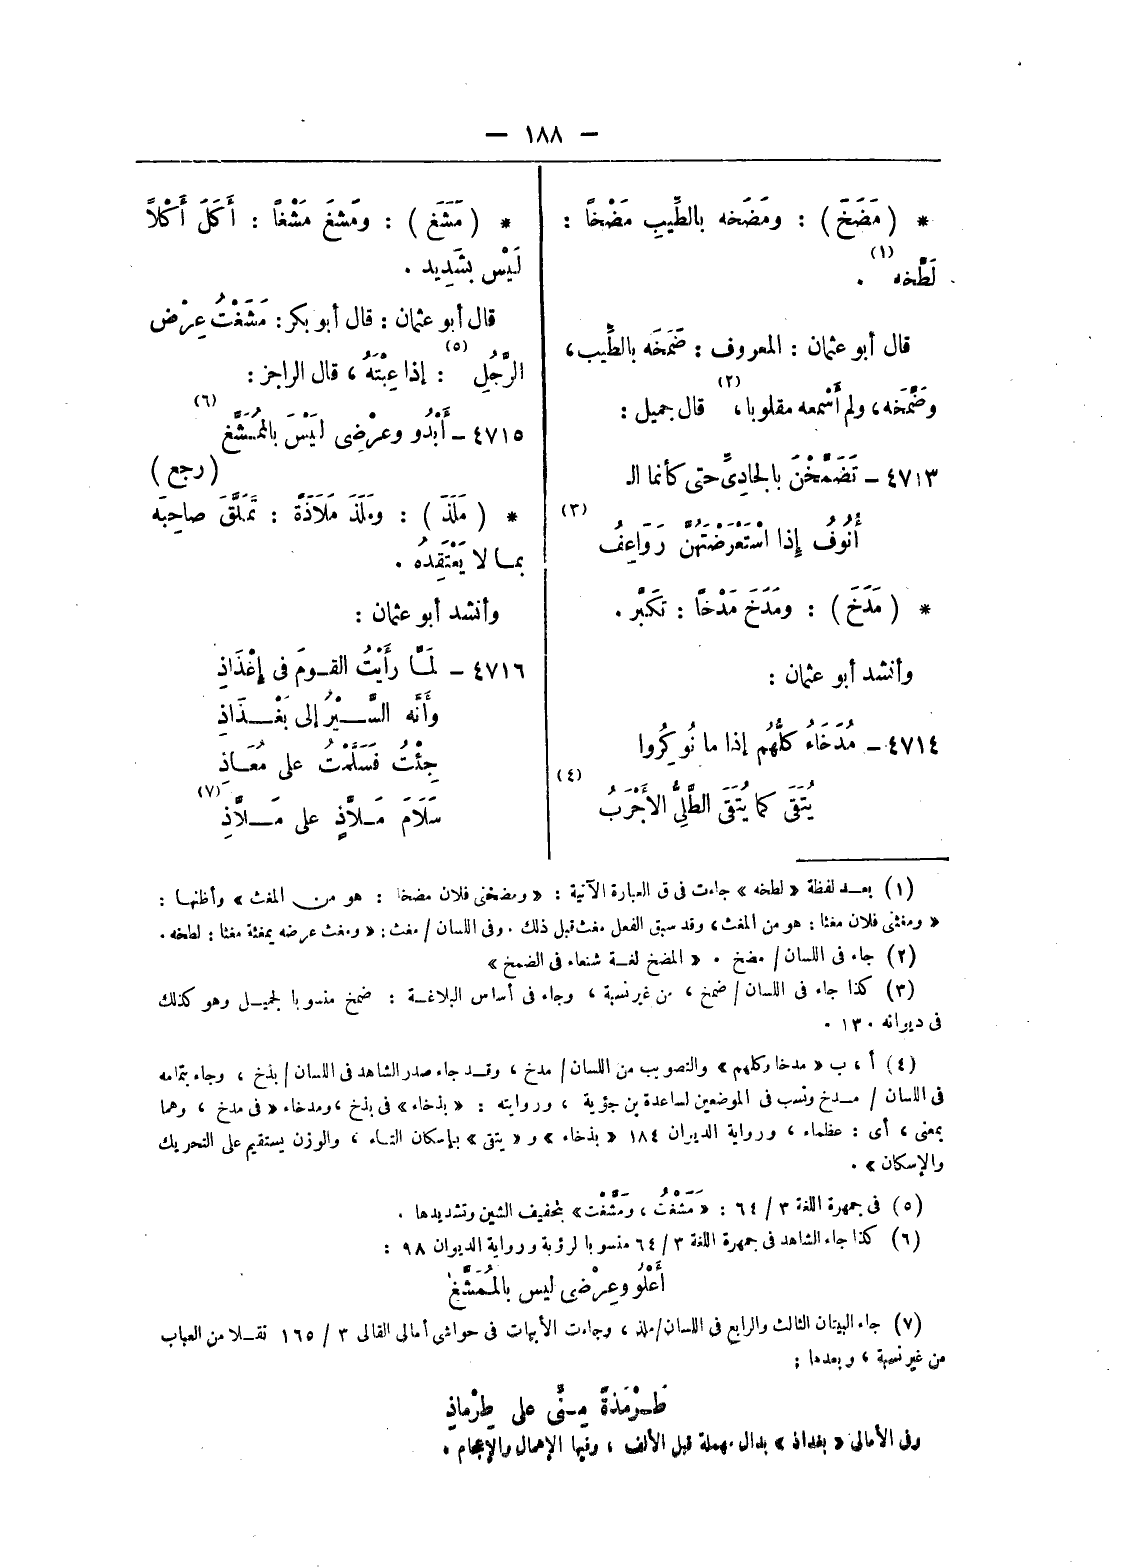 — ١٨٨ —
* ( مَضَخَ ) : ومَضَخه بالطِّيبِ مَضْخاً :
لَطَّخه (١) .
قال أبو عثمان : المعروف : ضَمَخَه بالطِّيب ،
وضَمَّخه ، ولم أَسْمعه مقلوبا ، (٢) قال جميل :
٤٧١٣ – تَضَمَّخْنَ بالجادِىِّ حتى كأنما الـ
أُنُوفُ إِذا اسْتَعْرَضْتَهُنَّ رَوَاعِفُ (٣)
* ( مَدَخَ ) : ومَدَخَ مَدْخاً : تكَبَّر .
وأنشد أبو عثمان :
٤٧١٤ – مُدَخَاءُ كلُّهُم إذا ما نُوكِرُوا
يُتَقَى كما يُتَقَى الطَّلِىُّ الأَجْرَبُ (٤)
* ( مَشَغ ) : ومَشغَ مَشْغاً : أَكَلَ أَكْلاً
لَيْس بشَدِيد .
قال أبو عثمان : قال أبو بكر : مَشَغْتُ عِرْض
الرَّجُلِ (٥) : إذا عِبْتَهُ ، قال الراجز :
٤٧١٥ – أَبْدُو وعِرْضِى لَيْسَ بالمُمَشَّغِ (٦)
( رجع )
* ( مَلَذَ ) : ومَلَذَ مَلَاذَةً : تَمَلَّقَ صاحِبَه
بمـا لا يَعْتَقِدُه .
وأنشد أبو عثمان :
٤٧١٦ – لمَّـا رأَيْتُ القـومَ فى إِغْذَاذِ
وأَنَّه السَّـيْرُ إلى بَغْـذَاذِ
جِئْتُ فَسَلَّمْتُ على مُعَـاذِ
سَلَامَ مَـلاَّذٍ على مَـلاَّذِ (٧)
(١) بعـد لفظة « لطخه » جاءت فى ق العبارة الآتية : « ومضخنى فلان مضخا : هو من المغث » وأظنها :
« ومغثنى فلان مغثا : هو من المغث ، وقد سبق الفعل مغث قبل ذلك . وفى اللسان / مغث : « ومغث عرضه يمغثه مغثا : لطخه .
(٢) جاء فى اللسان / مضخ . « المضخ لغـة شنعاء فى الضمخ »
(٣) كذا جاء فى اللسان / ضمخ ، من غير نسبة ، وجاء فى أساس البلاغـة : ضمخ منسوبا لجميـل وهو كذلك
فى ديوانه ١٣٠ .
(٤) أ ، ب « مدخا وكلهم » والتصويب من اللسان / مدخ ، وقـد جاء صدر الشاهد فى اللسان / بذخ ، وجاء بتمامه
فى اللسان / مـدخ ونسب فى الموضعين لساعدة بن جؤية ، وروايته : « بذخاء » فى بذخ ، ومدخاء « فى مدخ ، وهما
بمعنى ، أى : عظماء ، ورواية الديوان ١٨٤ « بذخاء » و « يتقى » بإسكان التـاء ، والوزن يستقيم على التحريك
والإسكان » .
(٥) فى جمهرة اللغة ٣ / ٦٤ : « مَشَغْتُ ، ومَشَّغْت » بتخفيف الشين وتشديدها .
(٦) كذا جاء الشاهد فى جمهرة اللغة ٣ / ٦٤ منسوبا لرؤبة ورواية الديوان ٩٨ :
أَعْلُو وعِرْضِى ليس بالمُمَشَّغِ
(٧) جاء البيتان الثالث والرابع فى اللسان / ملذ ، وجاءت الأبيات فى حواشى أمالى القالى ٣ / ١٦٥ نقـلا من العباب
من غير نسبة ، وبعدها :
طَـرْمَذةً مِـنِّى على طِرْماذِ
وفى الأمالى « بغداذ » بدال مهملة قبل الألف ، وفيها الإهمال والإعجام .